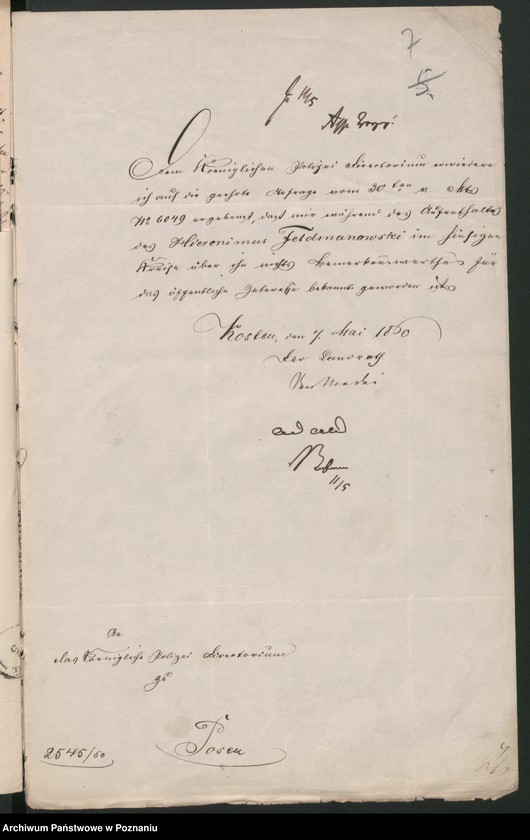 7
Dem Königlichen Polizei Directorium erwiedere
ich auf die geehrte Anfrage vom 30ten v. Mts
No 6049 ergebenst, daß mir während des Aufenthaltes
des Hieronimus Feldmanowski im hiesigen
Kreise über ihn nichts bemerkenswerthes für
das öffentliche Interesse bekannt geworden ist
Kosten, den 7. Mai 1860
Der Landrath
ad acta
11/5
An
das Koenigliche Polizei Directorium
zu
Posen
2545/60
Archiwum Państwowe w Poznaniu